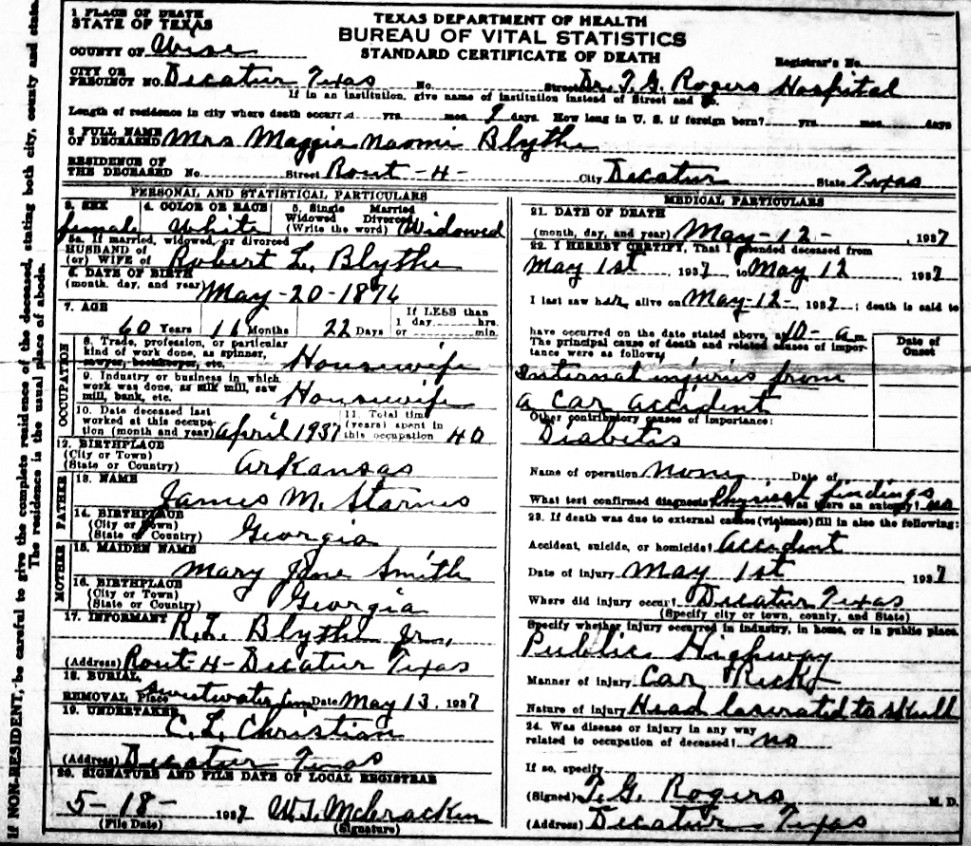 1 PLACE OF DEATH
STATE OF TEXAS
TEXAS DEPARTMENT OF HEALTH
BUREAU OF VITAL STATISTICS
STANDARD CERTIFICATE OF DEATH
COUNTY OF Wise
Registrar's No.
CITY OR
PRECINCT NO. Decatur Texas No. Street Dr. T. G. Rogers Hospital
If in an institution, give name of institution instead of Street and
Length of residence in city where death occurred yrs. mos. 9 days. How long in U. S. if foreign born? yrs. mos. days
2 FULL NAME
OF DECEASED Mrs Maggie Naomi Blythe
RESIDENCE OF
THE DECEASED No. Street Rout -4- City Decatur State Texas
PERSONAL AND STATISTICAL PARTICULARS
3. SEX 4. COLOR OR RACE 5. Single Married
Widowed Divorced
(Write the word) Widowed
female White
5a. If married, widowed, or divorced
HUSBAND OF
(or) WIFE of Robert L. Blythe
6. DATE OF BIRTH
(month, day, and year) May-20-1876
7. AGE If LESS than
60 Years 11 Months 22 Days 1 day hrs.
or min.
OCCUPATION
8. Trade, profession, or particular
kind of work done, as spinner,
sawyer, bookkeeper, etc. Housewife
9. Industry or business in which
work was done, as silk mill, saw
mill, bank, etc. Housewife
10. Date deceased last
worked at this occupa-
tion (month and year) April 1937
11. Total time
(years) spent in
this occupation 40
12. BIRTHPLACE
(City or Town)
(State or Country) Arkansas
FATHER
13. NAME
James M. Starnes
14. BIRTHPLACE
(City or Town)
(State or Country) Georgia
MOTHER
15. MAIDEN NAME
Mary Jane Smith
16. BIRTHPLACE
(City or Town)
(State or Country) Georgia
17. INFORMANT R. L. Blythe Jr.,
(Address) Rout-4-Decatur Texas
18. BURIAL,
REMOVAL Place Sweetwater Date May 13, 1937
19. UNDERTAKER
C. L. Christian
(Address) Decatur Texas
20. SIGNATURE AND FILE DATE OF LOCAL REGISTRAR
5-18- 1937 McCracken
(File Date) (Signature)
MEDICAL PARTICULARS
21. DATE OF DEATH
(month, day, and year) May-12-, 1937
22. I HEREBY CERTIFY, That I attended deceased from
May 1st, 1937, to May 12 1937
I last saw her alive on May-12-, 1937; death is said to
have occurred on the date stated above, at 10- a.m.
The principal cause of death and related causes of impor-
tance were as follows:
Date of
Onset
Internal injuris from
a car accident
Other contributory causes of importance:
Diabetis
Name of operation Date of
What test confirmed diagnosis? Physical findings Was there an autopsy? no
23. If death was due to external causes (violence) fill in also the following:
Accident, suicide, or homicide? Accident
Date of injury May 1st 1937
Where did injury occur? Decatur Texas
(Specify city or town, county, and State)
Specify whether injury occurred in industry, in home, or in public place.
Public Highway
Manner of injury Car Rick
Nature of injury Head laserated to skull
24. Was disease or injury in any way
related to occupation of deceased? no
If so, specify
(Signed) T. G. Rogers M. D.
(Address) Decatur Texas
If NON-RESIDENT, be careful to give the complete residence of the deceased, stating both city, county and state.
The residence is the usual place of abode.